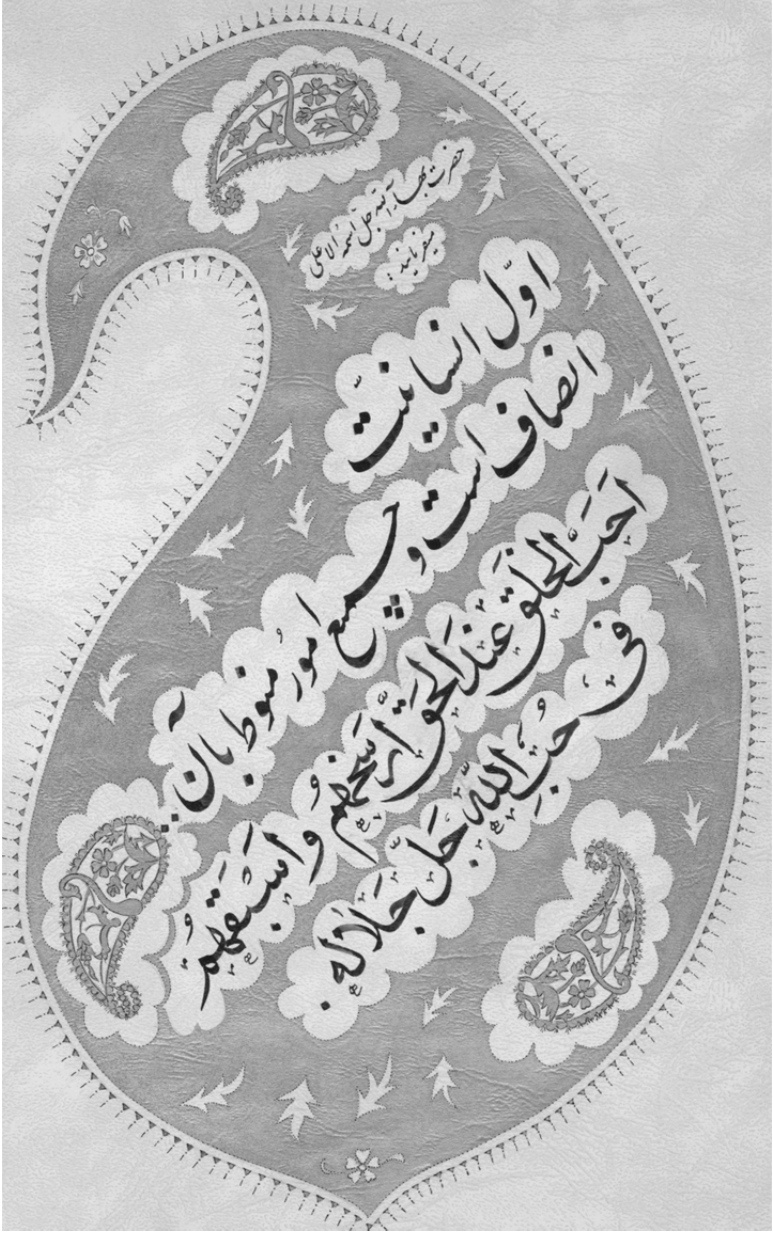 حضرت بهاءالله جل اسمه الاعلی
میفرمایند :
اوّل انسانیّت
انصاف است و جمیع امورُ منوط بآن .
اَحَبُّ الخَلقِ عِندَ الحَقِّ اَرسَخُهُم وَ اَسبَقَهُم
فی حُبِّ اللّهِ جَلَّ جَلالُهُ .